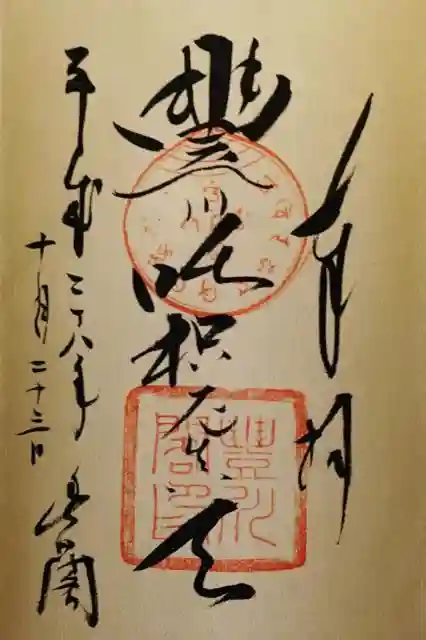 奉拝
豐川吒枳尼真天
平成二十八年
十月二十三日
豐川閣印